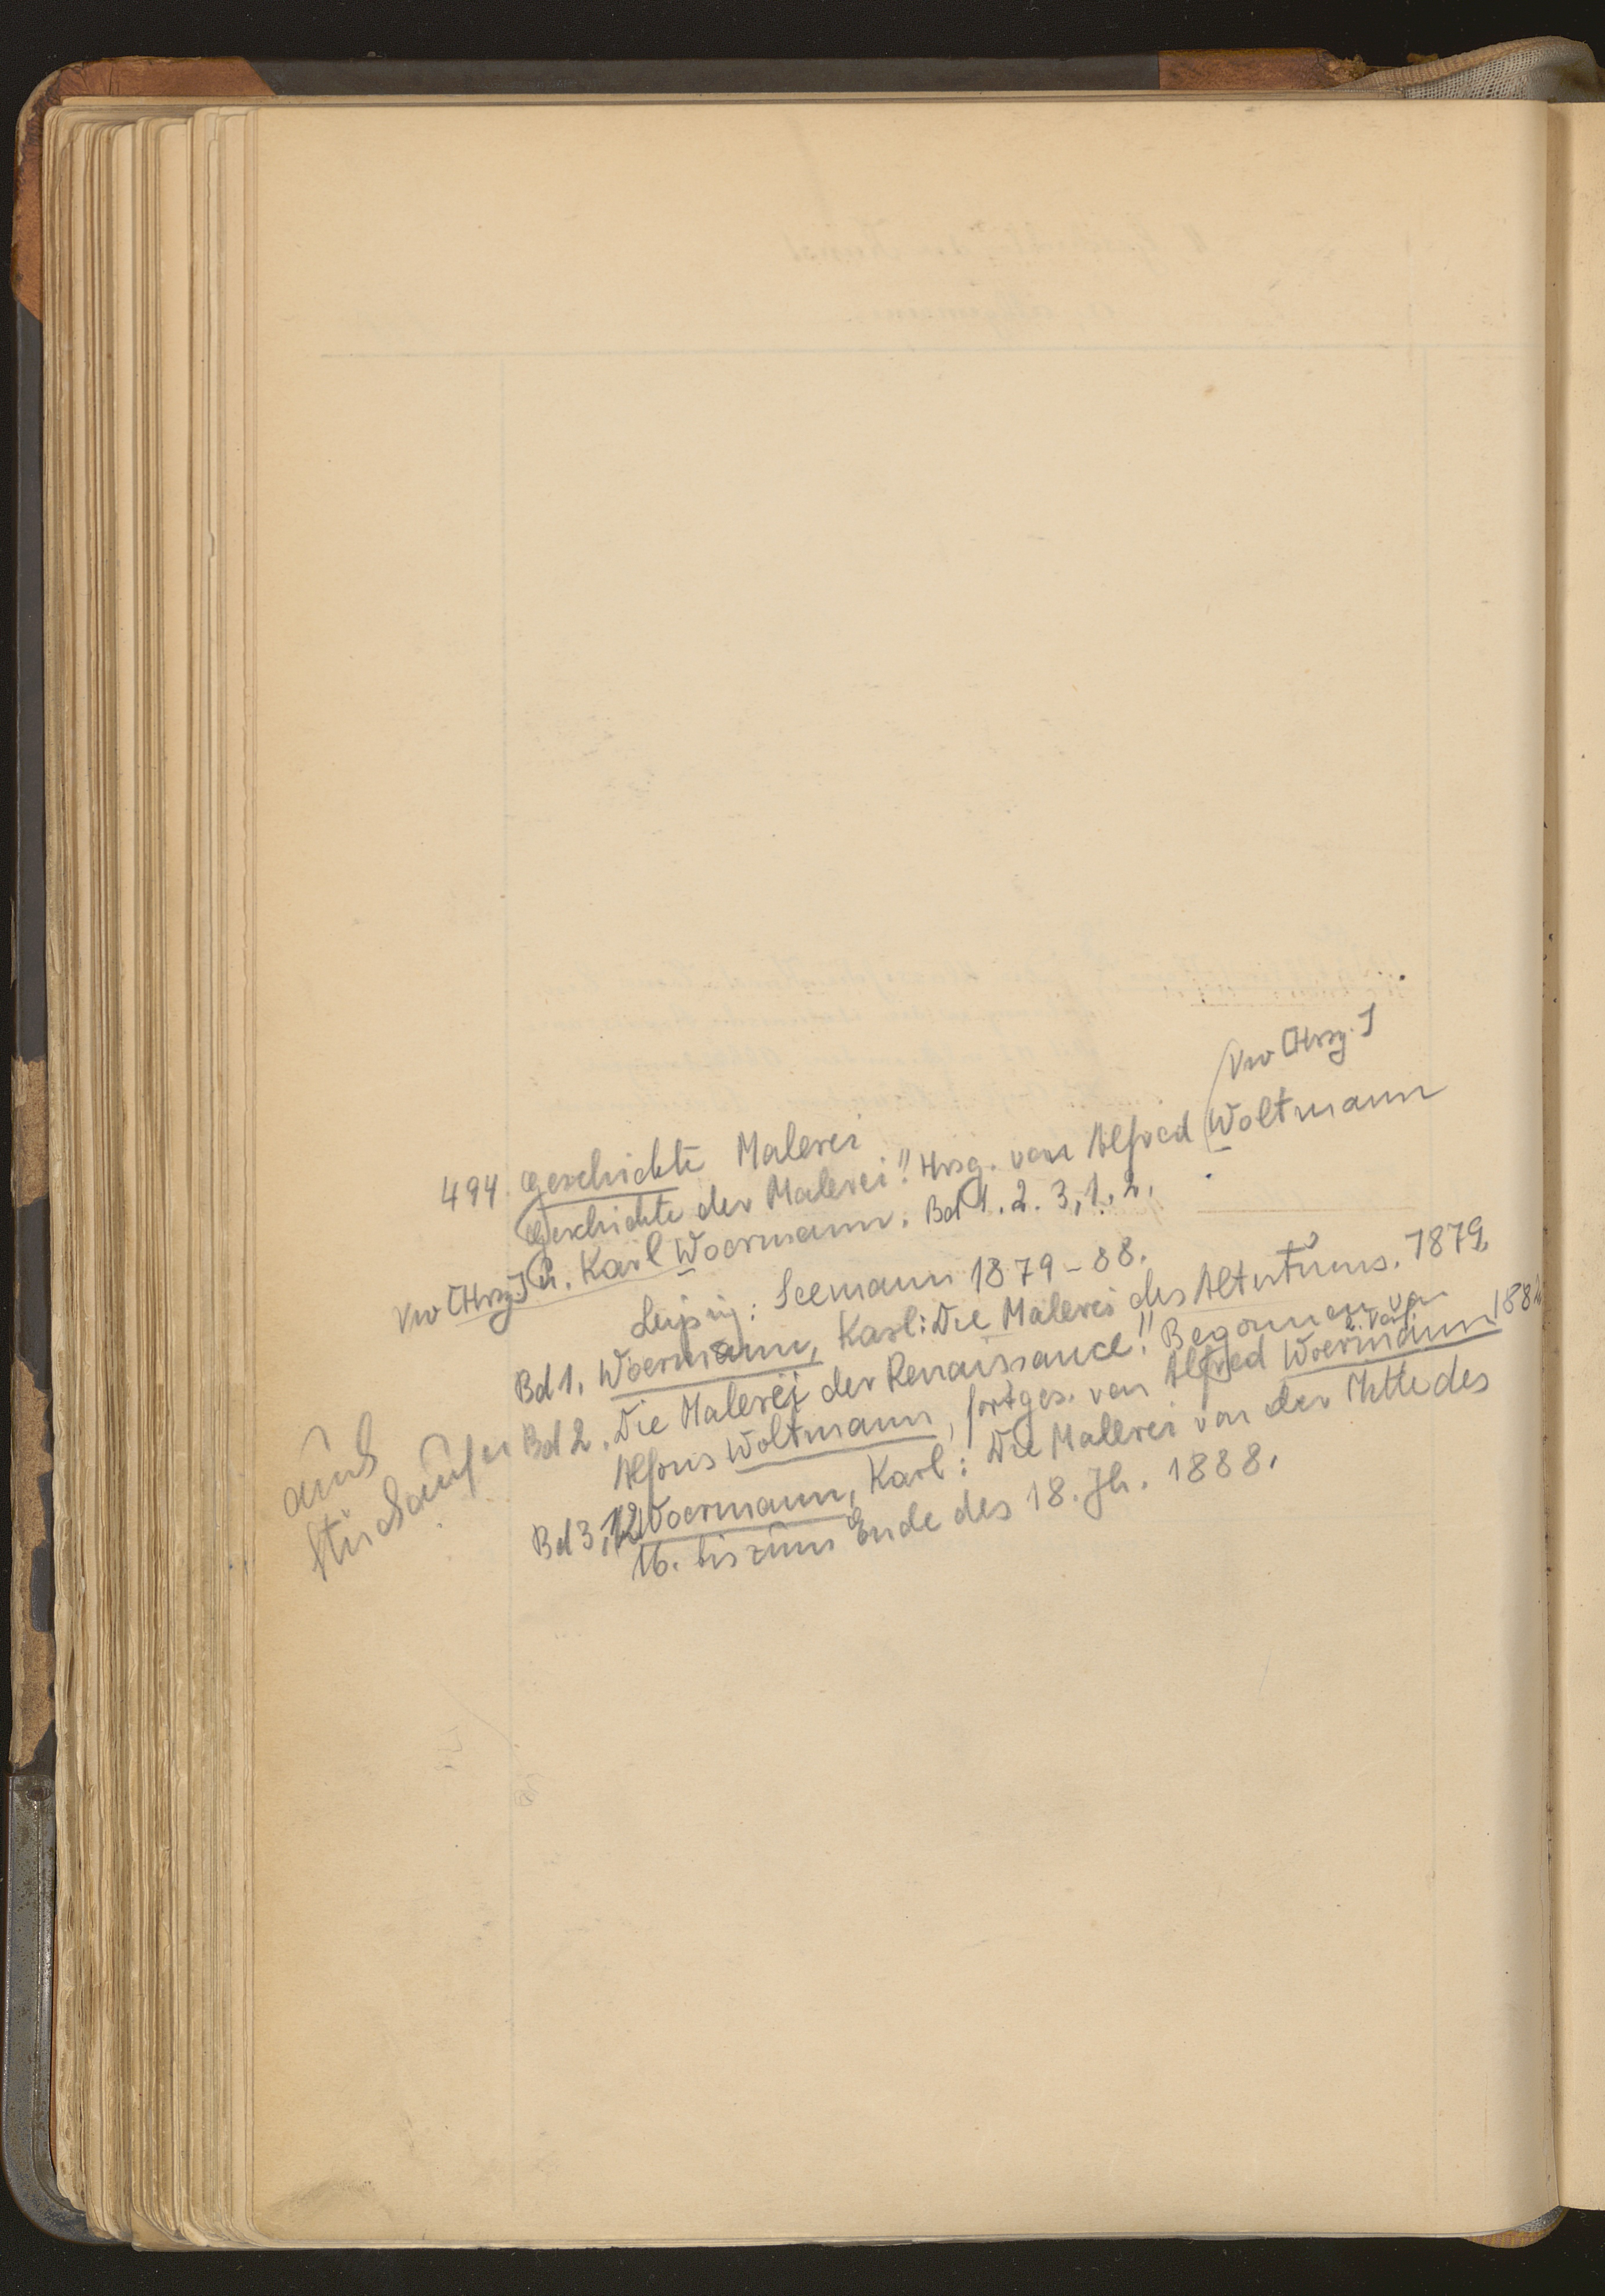 Vw [Hrsg.]
494. Geschichte Malerei
Geschichte der Malerei!! Hrsg. von Alfred Woltmann
Vw [Hrsg.] u. Karl Woermann. Bd 1. 2. 3,1.2.
Leipzig: Seemann 1879-88.
Bd 1. Woermann, Karl: Die Malerei des Altertums. 1879.
Bd 2. Die Malerei der Renaissance!! Begonnen von
2. Verf.
Alfons Woltmann, fortges. von Alfred Woermann 1882
Bd 3,1.2 Woermann, Karl: Die Malerei von der Mitte des
16. bis zum Ende des 18. Jh. 1888.
auch